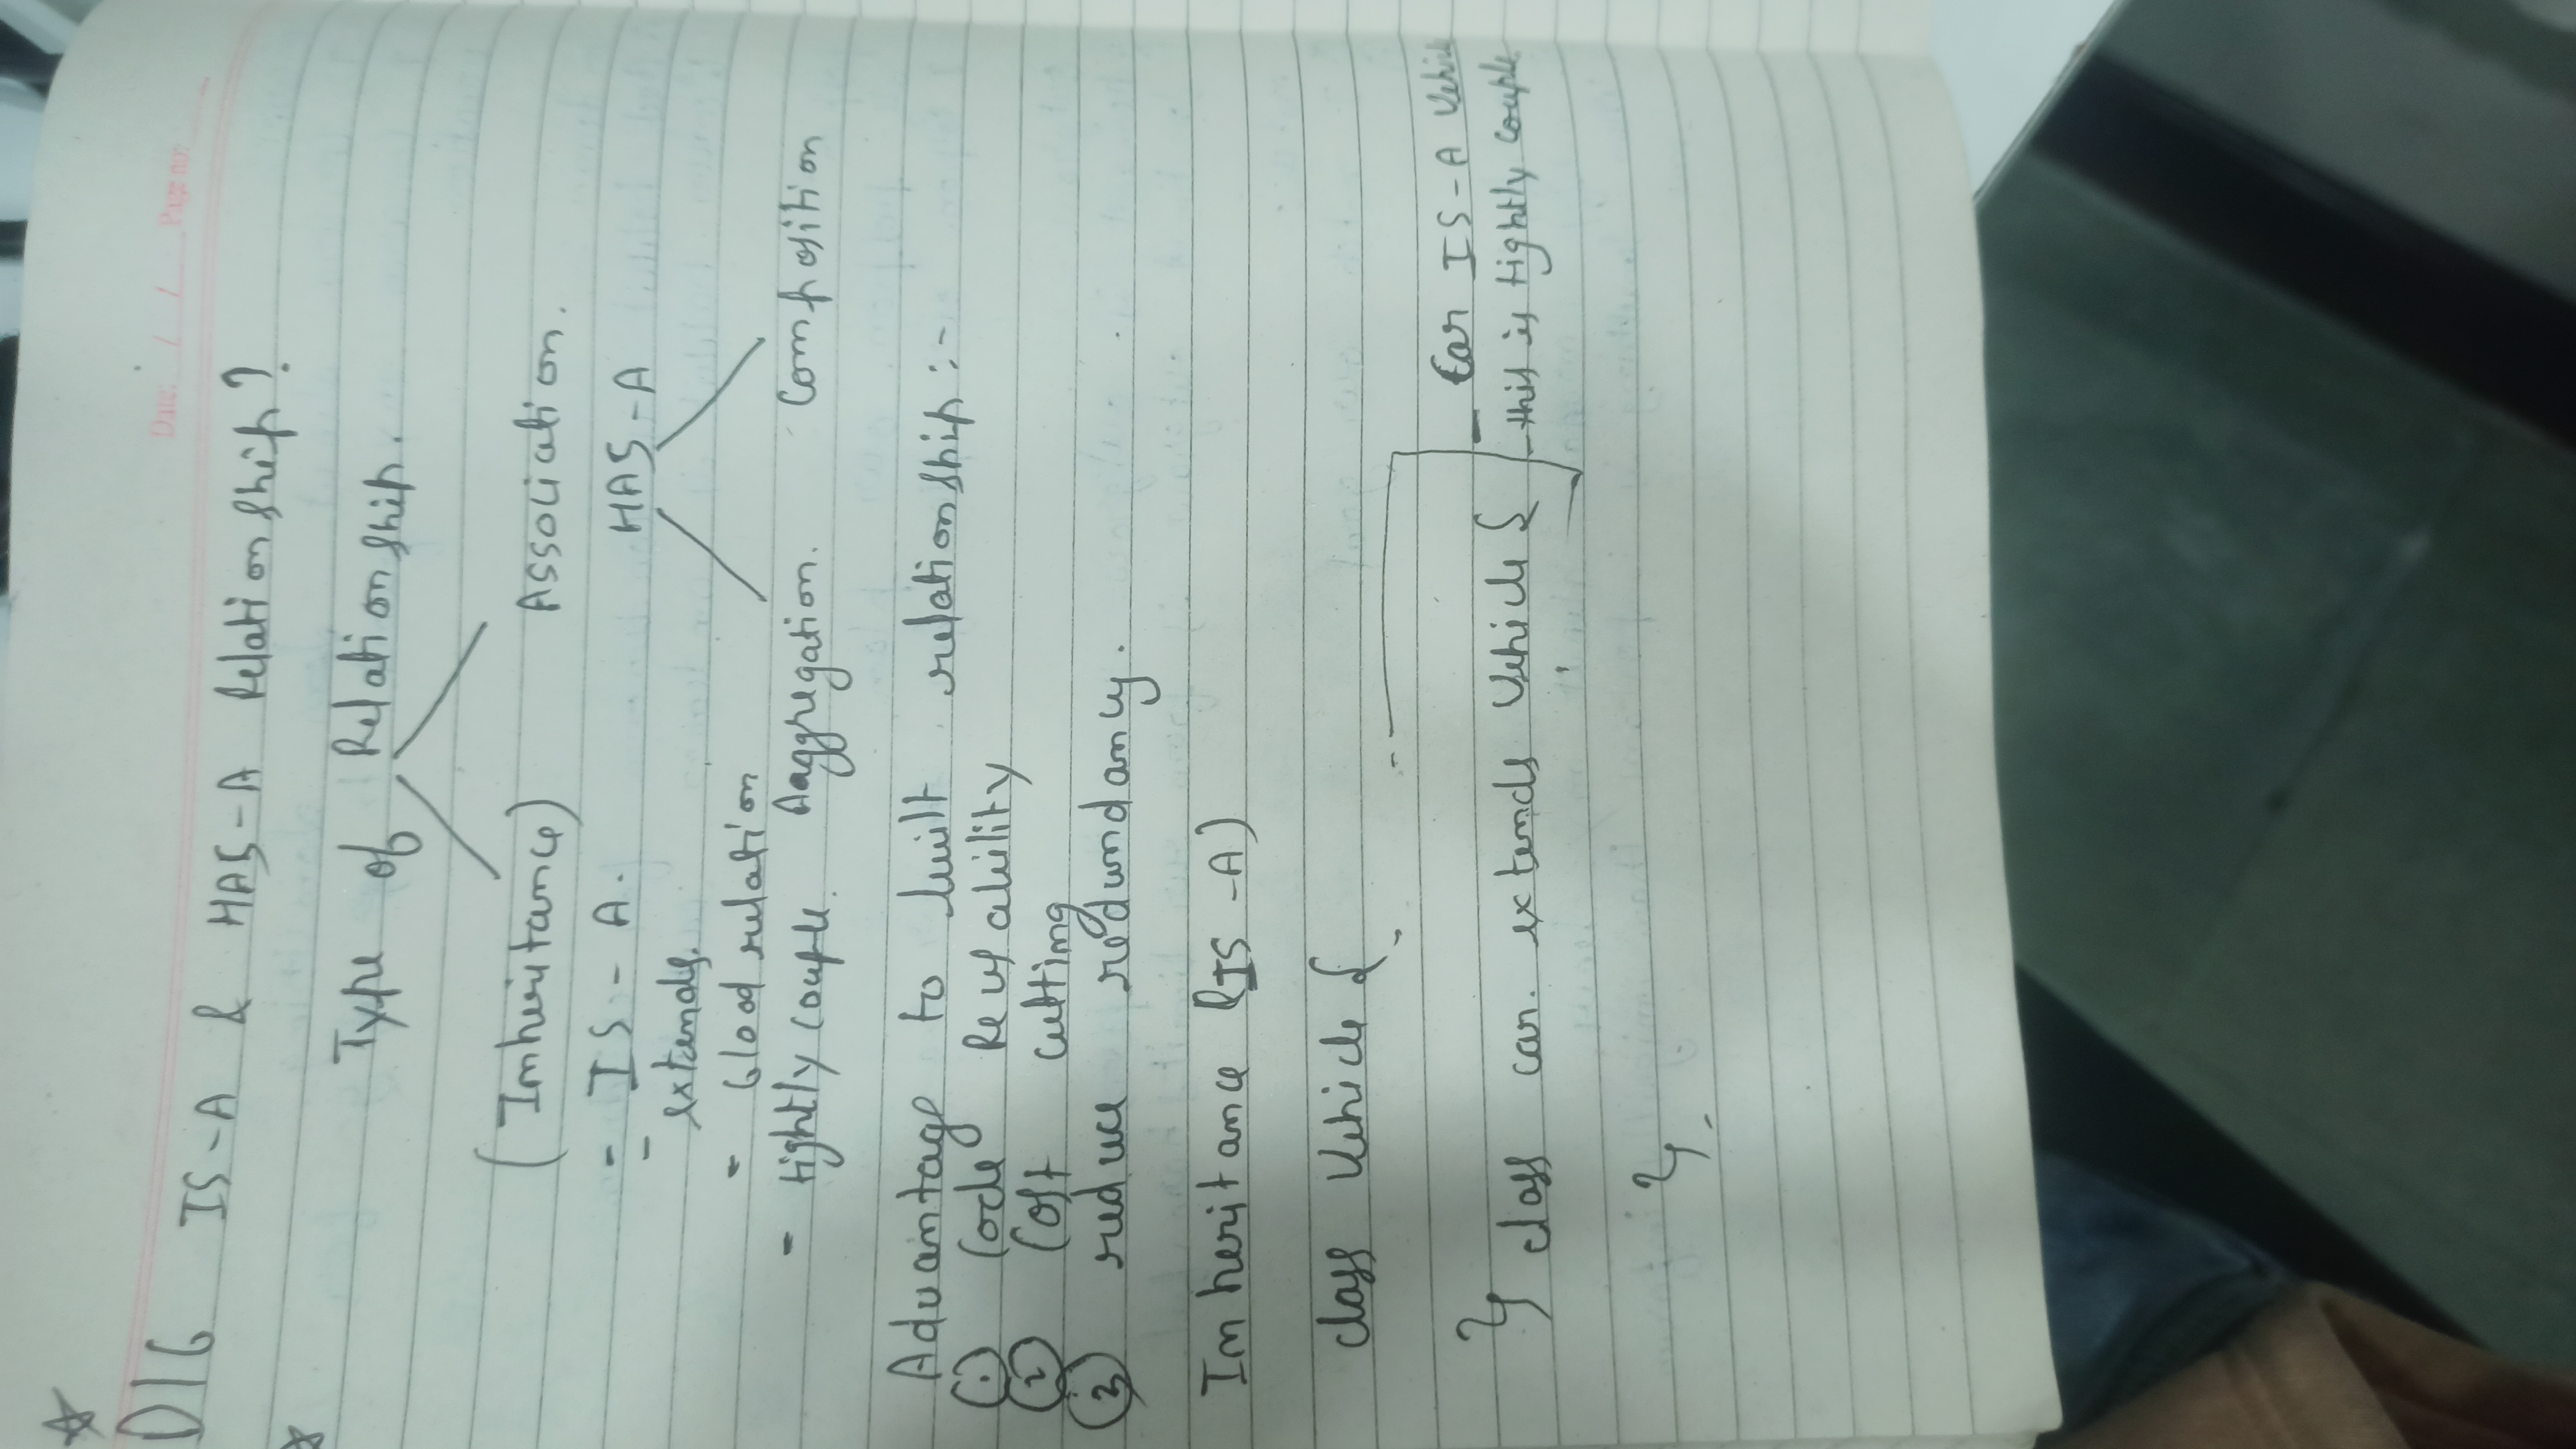 Date: / / Page no:
D16 IS-A & HAS-A Relationship?
Type of Relationship.
(Inheritance) Association.
= IS - A. HAS-A
extends.
- blood relation
- tightly couple. Aaggregation. Composition
Advantage to built relationship :-
1. Code Reusability
2 Cost cutting
3 reduce redundancy.
Inheritance (IS -A)
class Vehicle {
- Car IS-A Vehicle
} class car. extends Vehicle { - this is tightly couple
}